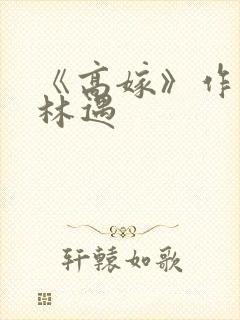 《高嫁》作
林遇
轩辕如歌